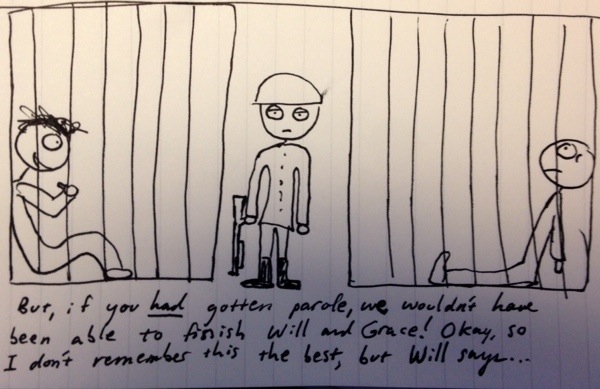 But, if you had gotten parole, we wouldn't have
been able to finish Will and Grace! Okay, so
I don't remember this the best, but Will says...